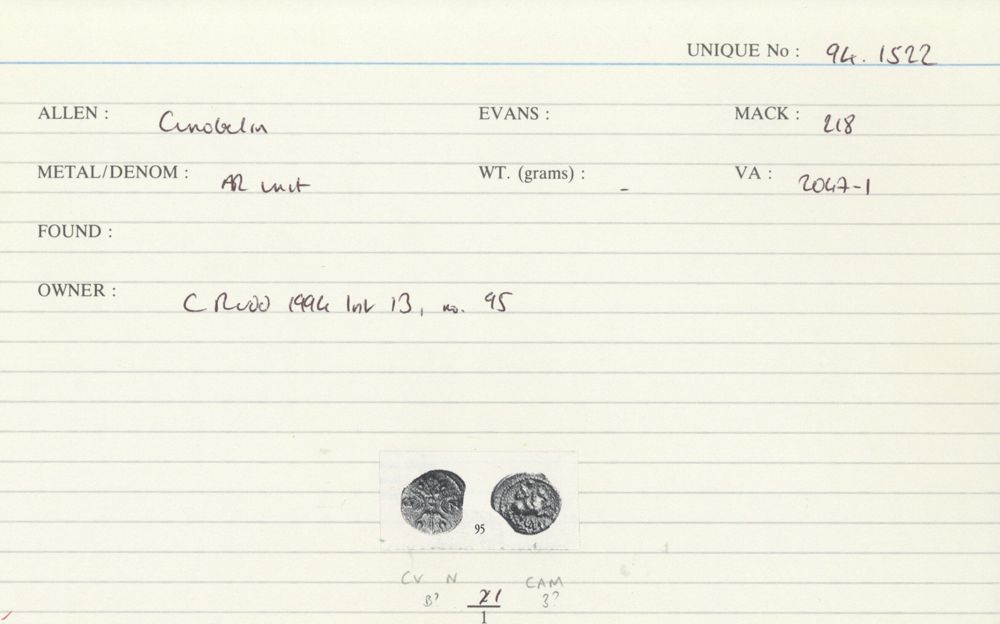 UNIQUE No : 94. 1522
ALLEN : Cunobelin EVANS : MACK : 218
METAL/DENOM : AR unit WT. (grams) : - VA : 2047-1
FOUND :
OWNER : C Rudd 1994 list 13, no. 95
95
CV N CAM
B? 21 3?
1